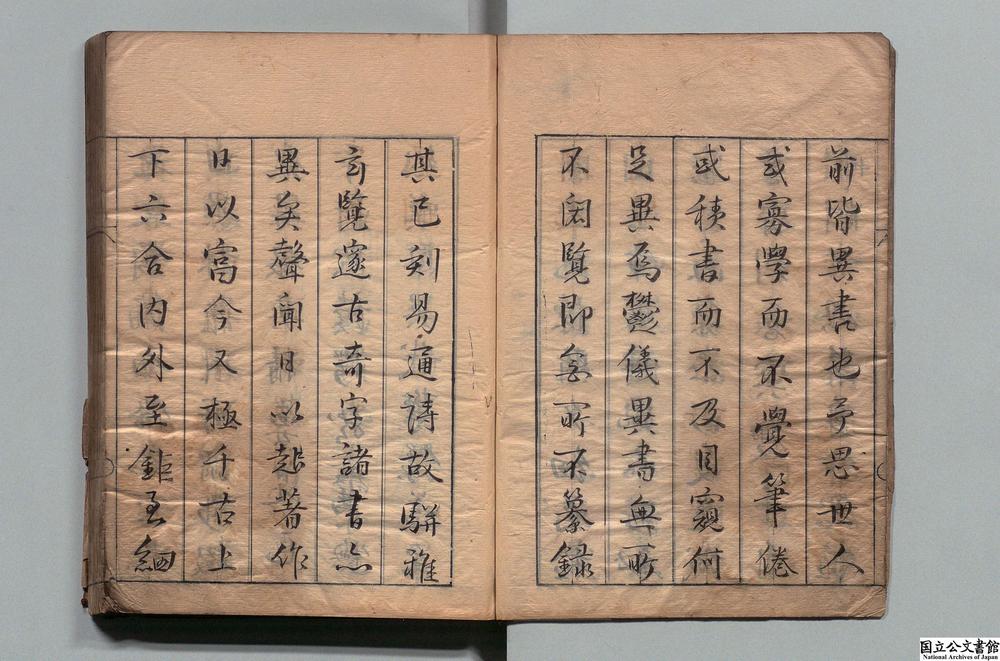 前皆異書也予思世人
或寡學而不覺筆倦
或積書而不及目窺何
足異焉鬱儀異書無所
不閎覽即無所不纂錄
其已刻易通詩故駢雅
玄覽邃古奇字諸書亦
異矣聲聞日以起著作
日以富今又極千古上
下六合內外至鉅至細
国立公文書館
National Archives of Japan